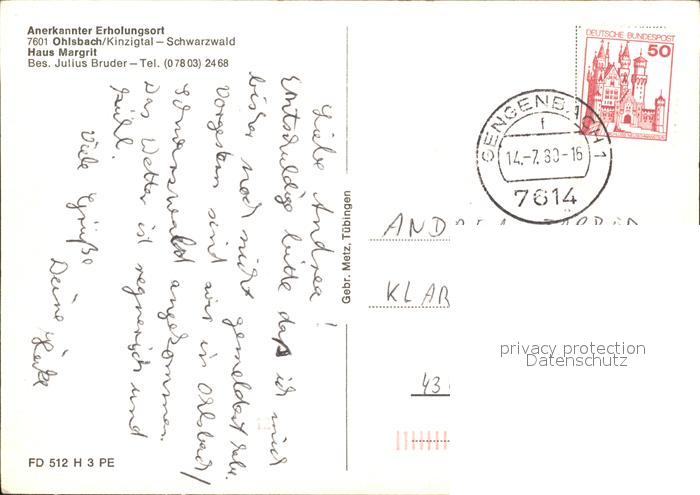 Anerkannter Erholungsort
7601 Ohlsbach/Kinzigtal – Schwarzwald
Haus Margrit
Bes. Julius Bruder – Tel. (07803) 2468
Liebe Andrea!
Entschuldige bitte daß ich mich
bisher noch nicht gemeldet habe.
Vorgestern sind wir in Ohlsbach/
Schwarzwald angekommen.
Das Wetter ist regnerisch und
kühl.
Viele Grüße
Deine
FD 512 H 3 PE
Gebr. Metz, Tübingen
DEUTSCHE BUNDESPOST
50
GENGENBACH 1
f
14.-7.80-16
7614
KLAR
43
privacy protection
Datenschutz